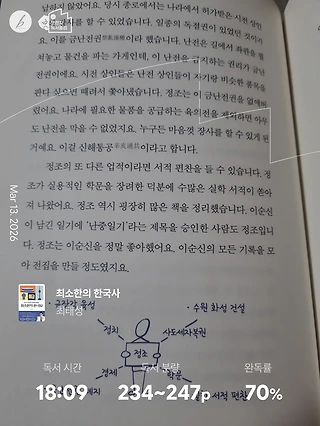 남하지 않았어요. 당시 종로에서는 나라에서 허가받은 시전 상인
들만 장사를 할 수 있었습니다. 일종의 독점권이 있었던 것이지
요. 이를 금난전권이라 했습니다. 난전은 길에서 좌판을 펼
쳐놓고 물건을 파는 가게인데, 이 난전을 금지하는 권리가 금난
전권이에요. 시전 상인들은 난전 상인들이 자기랑 비슷한 품목을
판다 싶으면 때려서 쫓아냈습니다. 정조는 이 금난전권을 없애버
렸어요. 나라에 필요한 물품을 공급하는 육의전을 제외하면 아무
도 난전을 막을 수 없었지요. 누구든 마음껏 장사를 할 수 있게 된
거예요. 이걸 신해통공辛亥通共이라고 합니다.
정조의 또 다른 업적이라면 서적 편찬을 들 수 있습니다. 정
조가 실용적인 학문을 장려한 덕분에 수많은 실학 서적이 쏟아
져 나왔어요. 정조 역시 굉장히 많은 책을 정리했습니다. 이순신
이 남긴 일기에 '난중일기'라는 제목을 승인한 사람도 정조입니
다. 정조는 이순신을 정말 좋아했어요. 이순신의 모든 기록을 모
아 전집을 만들 정도였지요.
Mar 13, 2026
최소한의 한국사
최태성
· 규장각 육성
· 수원 화성 건설
정치
사도세자복권
정조
경제
학문
서적 편찬
독서 시간
독서 분량
완독률
18:09
234~247p
70%